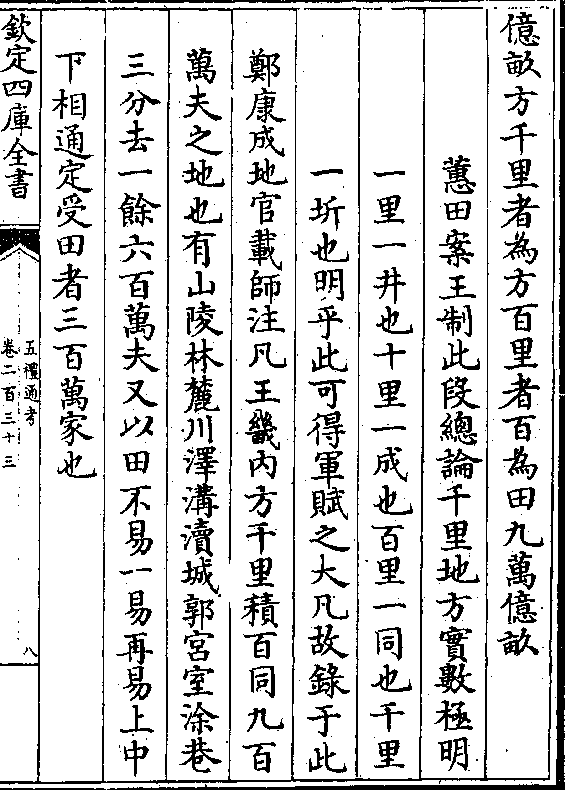 億畝方千里者為方百里者百為田九萬億畝
蕙田案王制此段總論千里地方實數極明
一里一井也十里一成也百里一同也千里
一圻也明乎此可得軍賦之大凡故錄于此
鄭康成地官載師注凡王畿内方千里積百同九百
萬夫之地也有山陵林麓川澤溝瀆城郭宮室涂巷
三分去一餘六百萬夫又以田不易一易再易上中
下相通定受田者三百萬家也
欽定四庫全書
五禮通考
卷二百三十三
八